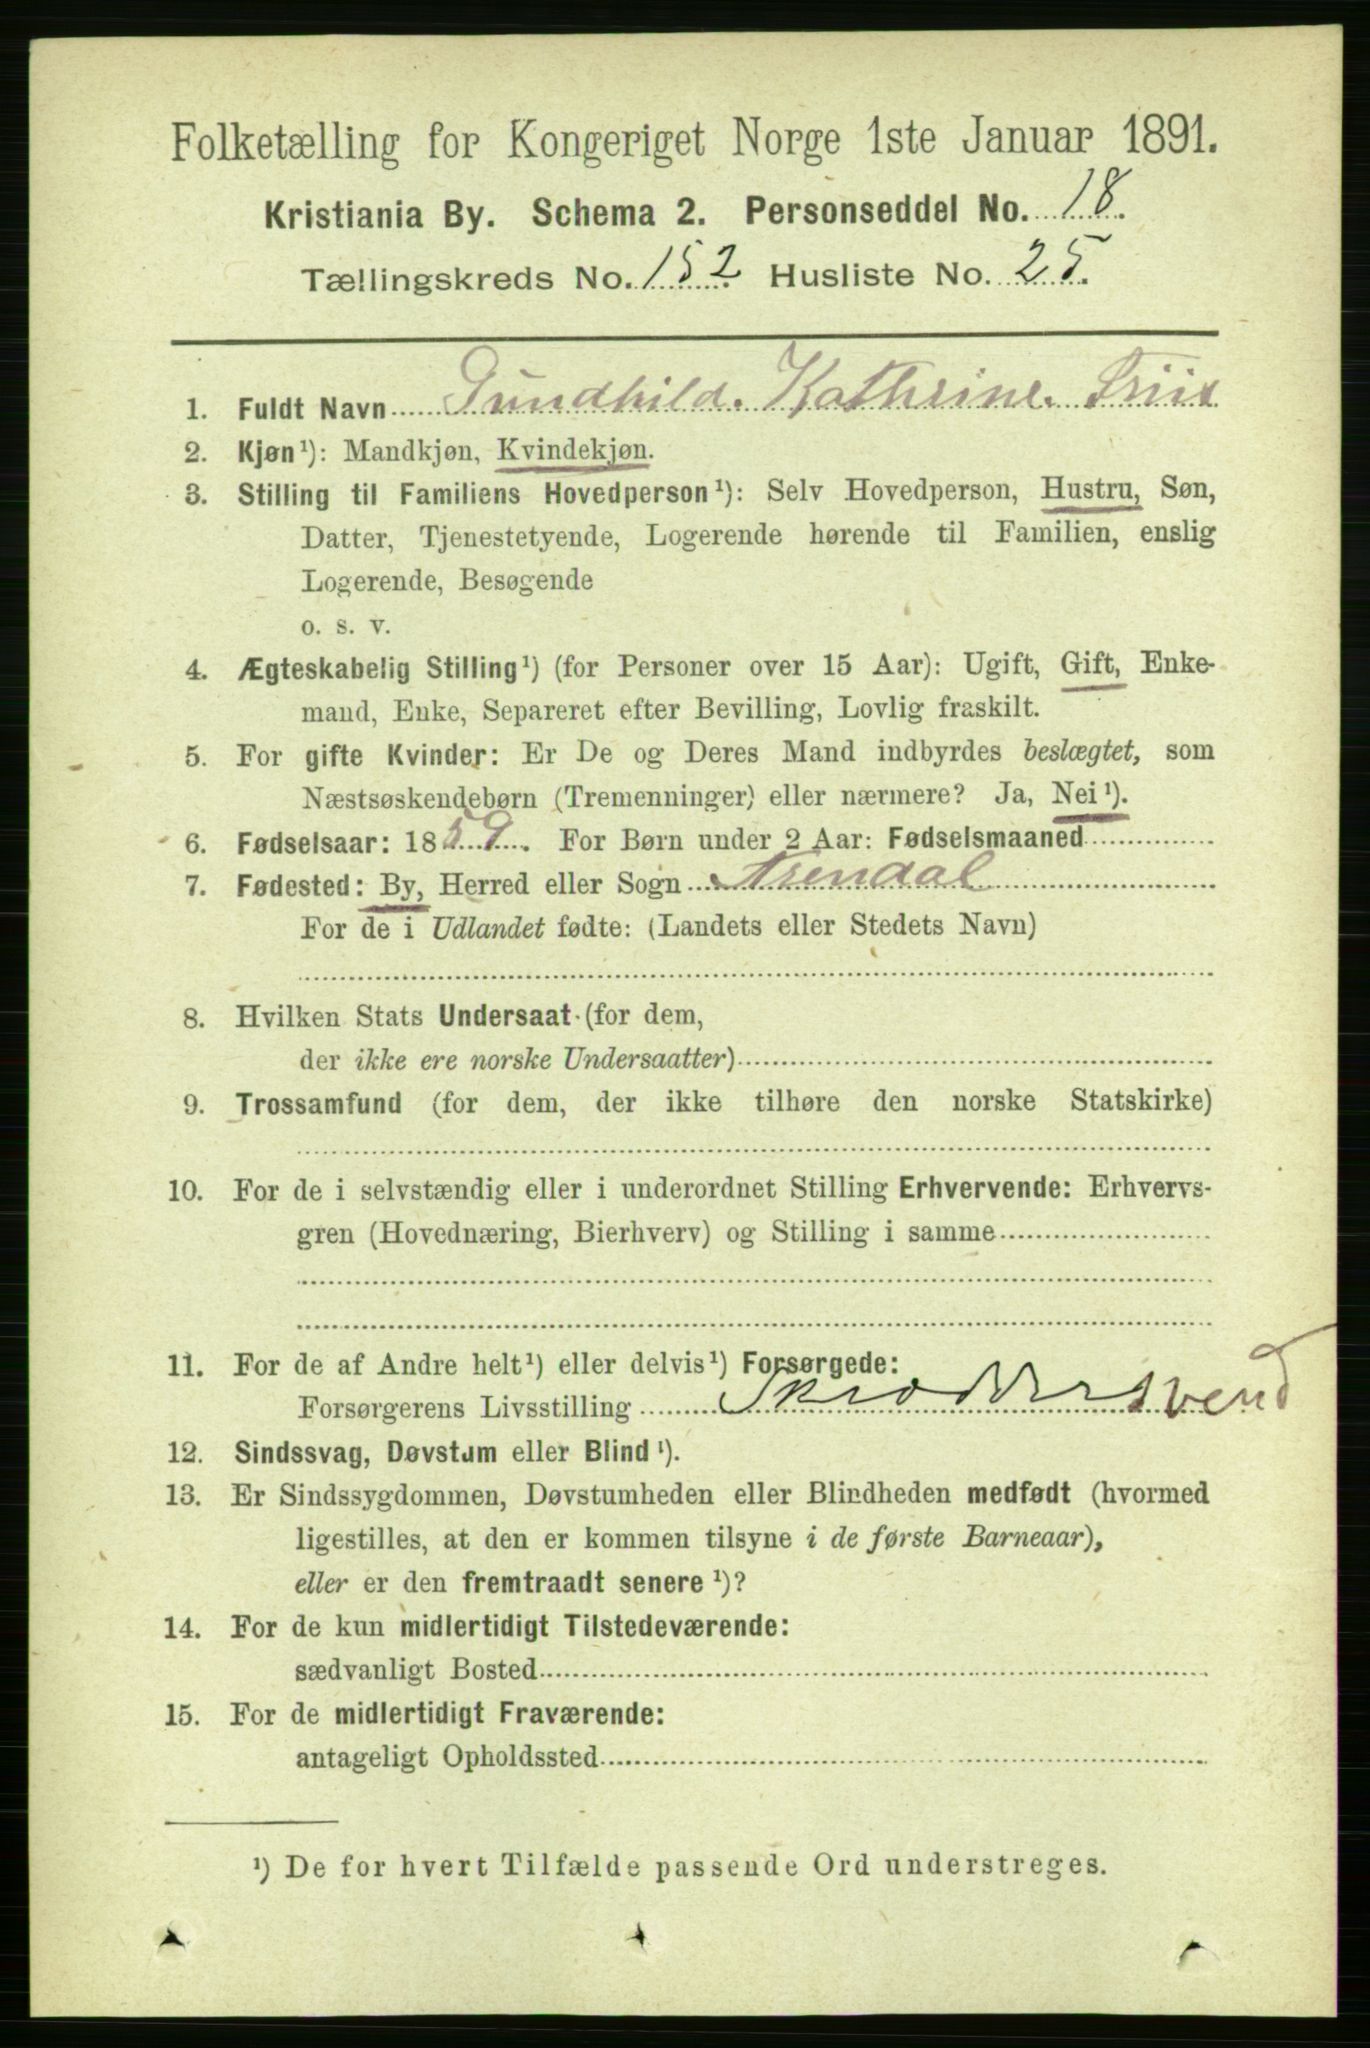 Folketælling for Kongeriget Norge 1ste Januar 1891.
Kristiania By. Schema 2. Personseddel No. 18.
Tællingskreds No. 152. Husliste No. 25.
1. Fuldt Navn Gundhild. Kathrine. Friis
2. Kjøn¹): Mandkjøn, Kvindekjøn.
3. Stilling til Familiens Hovedperson¹): Selv Hovedperson, Hustru, Søn,
Datter, Tjenestetyende, Logerende hørende til Familien, enslig
Logerende, Besøgende
o. s. v.
4. Ægteskabelig Stilling¹) (for Personer over 15 Aar): Ugift, Gift, Enke-
mand, Enke, Separeret efter Bevilling, Lovlig fraskilt.
5. For gifte Kvinder: Er De og Deres Mand indbyrdes beslægtet, som
Næstsøskendebørn (Tremenninger) eller nærmere? Ja, Nei¹).
6. Fødselsaar: 1859. For Børn under 2 Aar: Fødselsmaaned
7. Fødested: By, Herred eller Sogn Arendal
For de i Udlandet fødte: (Landets eller Stedets Navn)
8. Hvilken Stats Undersaat (for dem,
der ikke ere norske Undersaatter)
9. Trossamfund (for dem, der ikke tilhøre den norske Statskirke)
10. For de i selvstændig eller i underordnet Stilling Erhvervende: Erhvervs-
gren (Hovednæring, Bierhverv) og Stilling i samme
11. For de af Andre helt¹) eller delvis¹) Forsørgede:
Forsørgerens Livsstilling Skræddersvend
12. Sindssvag, Døvstum eller Blind¹).
13. Er Sindssygdommen, Døvstumheden eller Blindheden medfødt (hvormed
ligestilles, at den er kommen tilsyne i de første Barneaar),
eller er den fremtraadt senere¹)?
14. For de kun midlertidigt Tilstedeværende:
sædvanligt Bosted
15. For de midlertidigt Fraværende:
antageligt Opholdssted
¹) De for hvert Tilfælde passende Ord understreges.